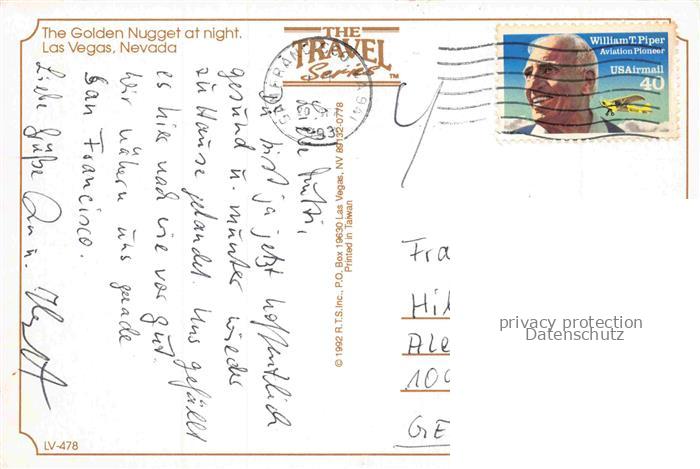 The Golden Nugget at night.
Las Vegas, Nevada
THE
TRAVEL
Series™
SAN FRANCISCO CA 941
William T. Piper
Aviation Pioneer
USAirmail
40
Liebe Mutti,
Du bist ja jetzt hoffentlich
gesund u. munter wieder
zu Hause gelandet. Uns gefällt
es hier nach wie vor gut.
Wir nähern uns gerade
San Francisco.
Liebe Grüße
© 1992 R.T.S. Inc., P.O. Box 19630 Las Vegas, NV 89132-0778
Printed in Taiwan
Fra
Hil
Ale
100
GE
privacy protection
Datenschutz
LV-478